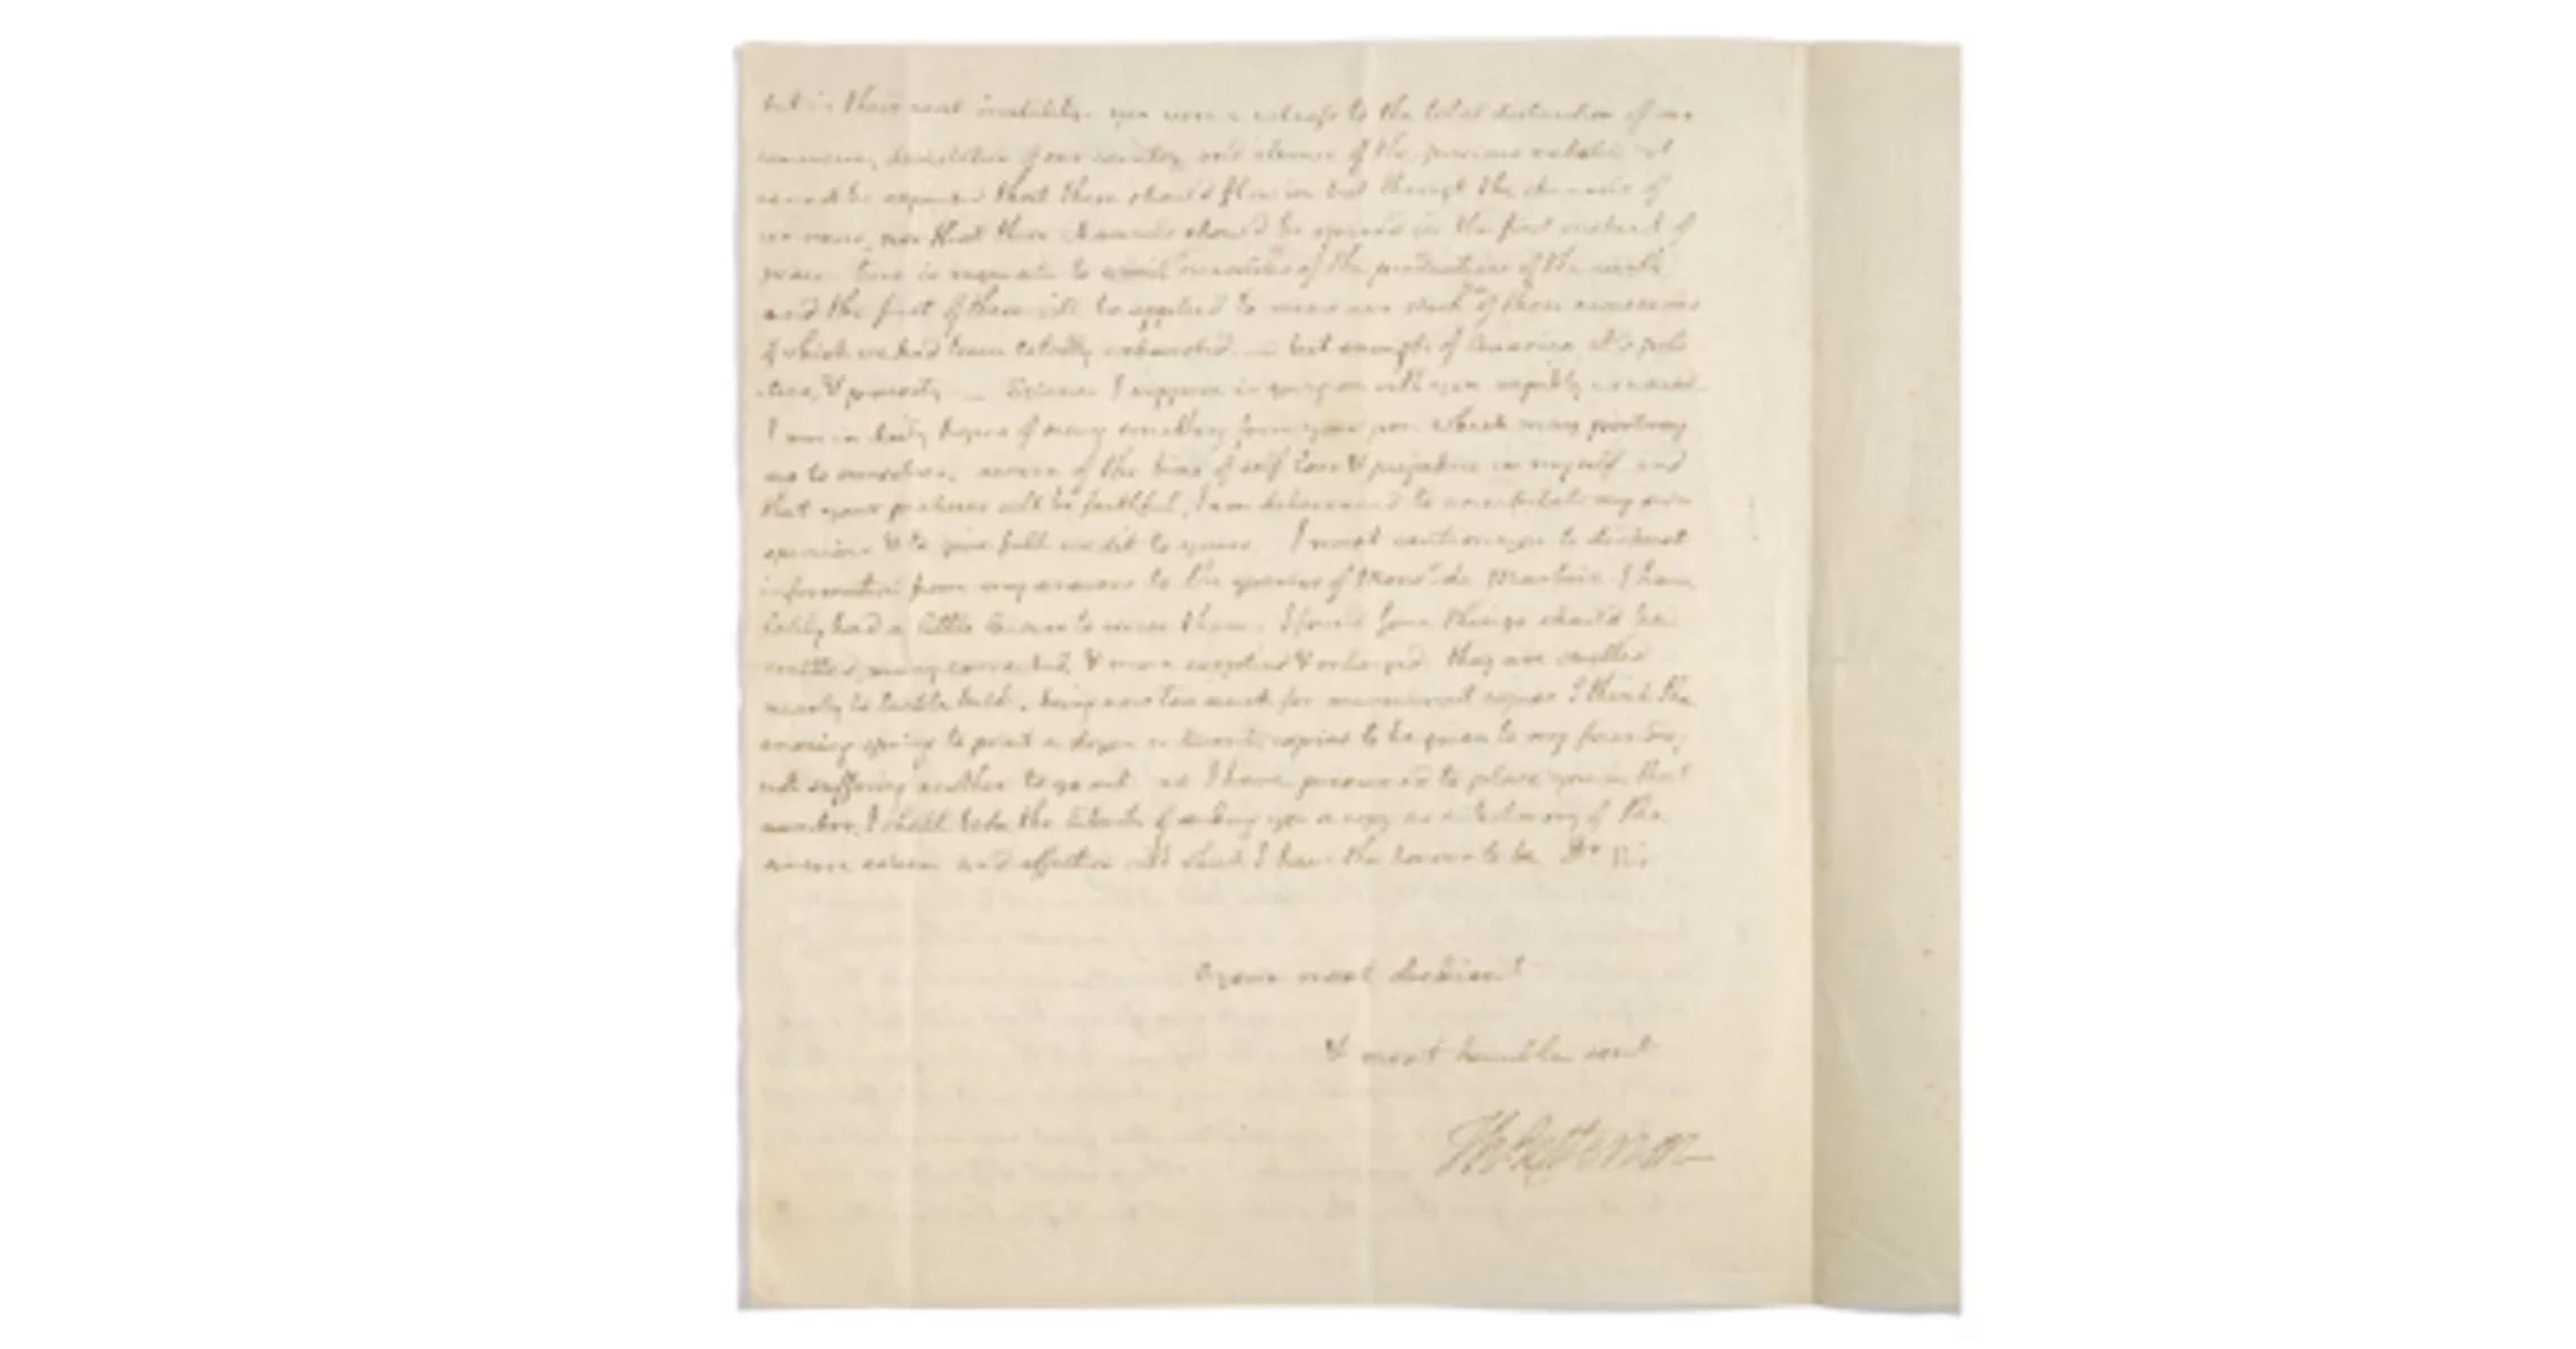 but in their real inability. you were a witness to the total destruction of our
commerce, devastation of our country, and absence of the precious metals. it
cannot be expected that these should flow in but through the channels of
commerce, nor that these channels should be opened in the first instant of
peace. time is requisite to avail ourselves of the productions of the earth,
and the first of these will be applied to renew our stock of those necessaries
of which we had been totally exhausted. — but enough of America, it's poli-
-tics, & poverty. — Science I suppose is going on with you rapidly as usual.
I am in daily hopes of seeing something from your pen which may portray
us to ourselves. aware of the bias of self love & prejudice in myself and
that your pictures will be faithful, I am determined to annihilate my own
opinions & to give full credit to yours. I must caution you to distrust
information from my answers to the queries of Monsr. de Marbois. I have
lately had a little leisure to revise them. I found some things should be
omitted, many corrected, & more supplied & enlarged. they are swelled
nearly to treble bulk. being now too much for manuscript copies I think the
ensuing spring to print a dozen or twenty copies to be given to my friends,
not suffering another to go out. as I have presumed to place you in that
number, I shall take the liberty of sending you a copy as a testimony of the
sincere esteem and affection with which I have the honour to be Dr Sir.
your most obedient
& most humble servt
Th: Jefferson